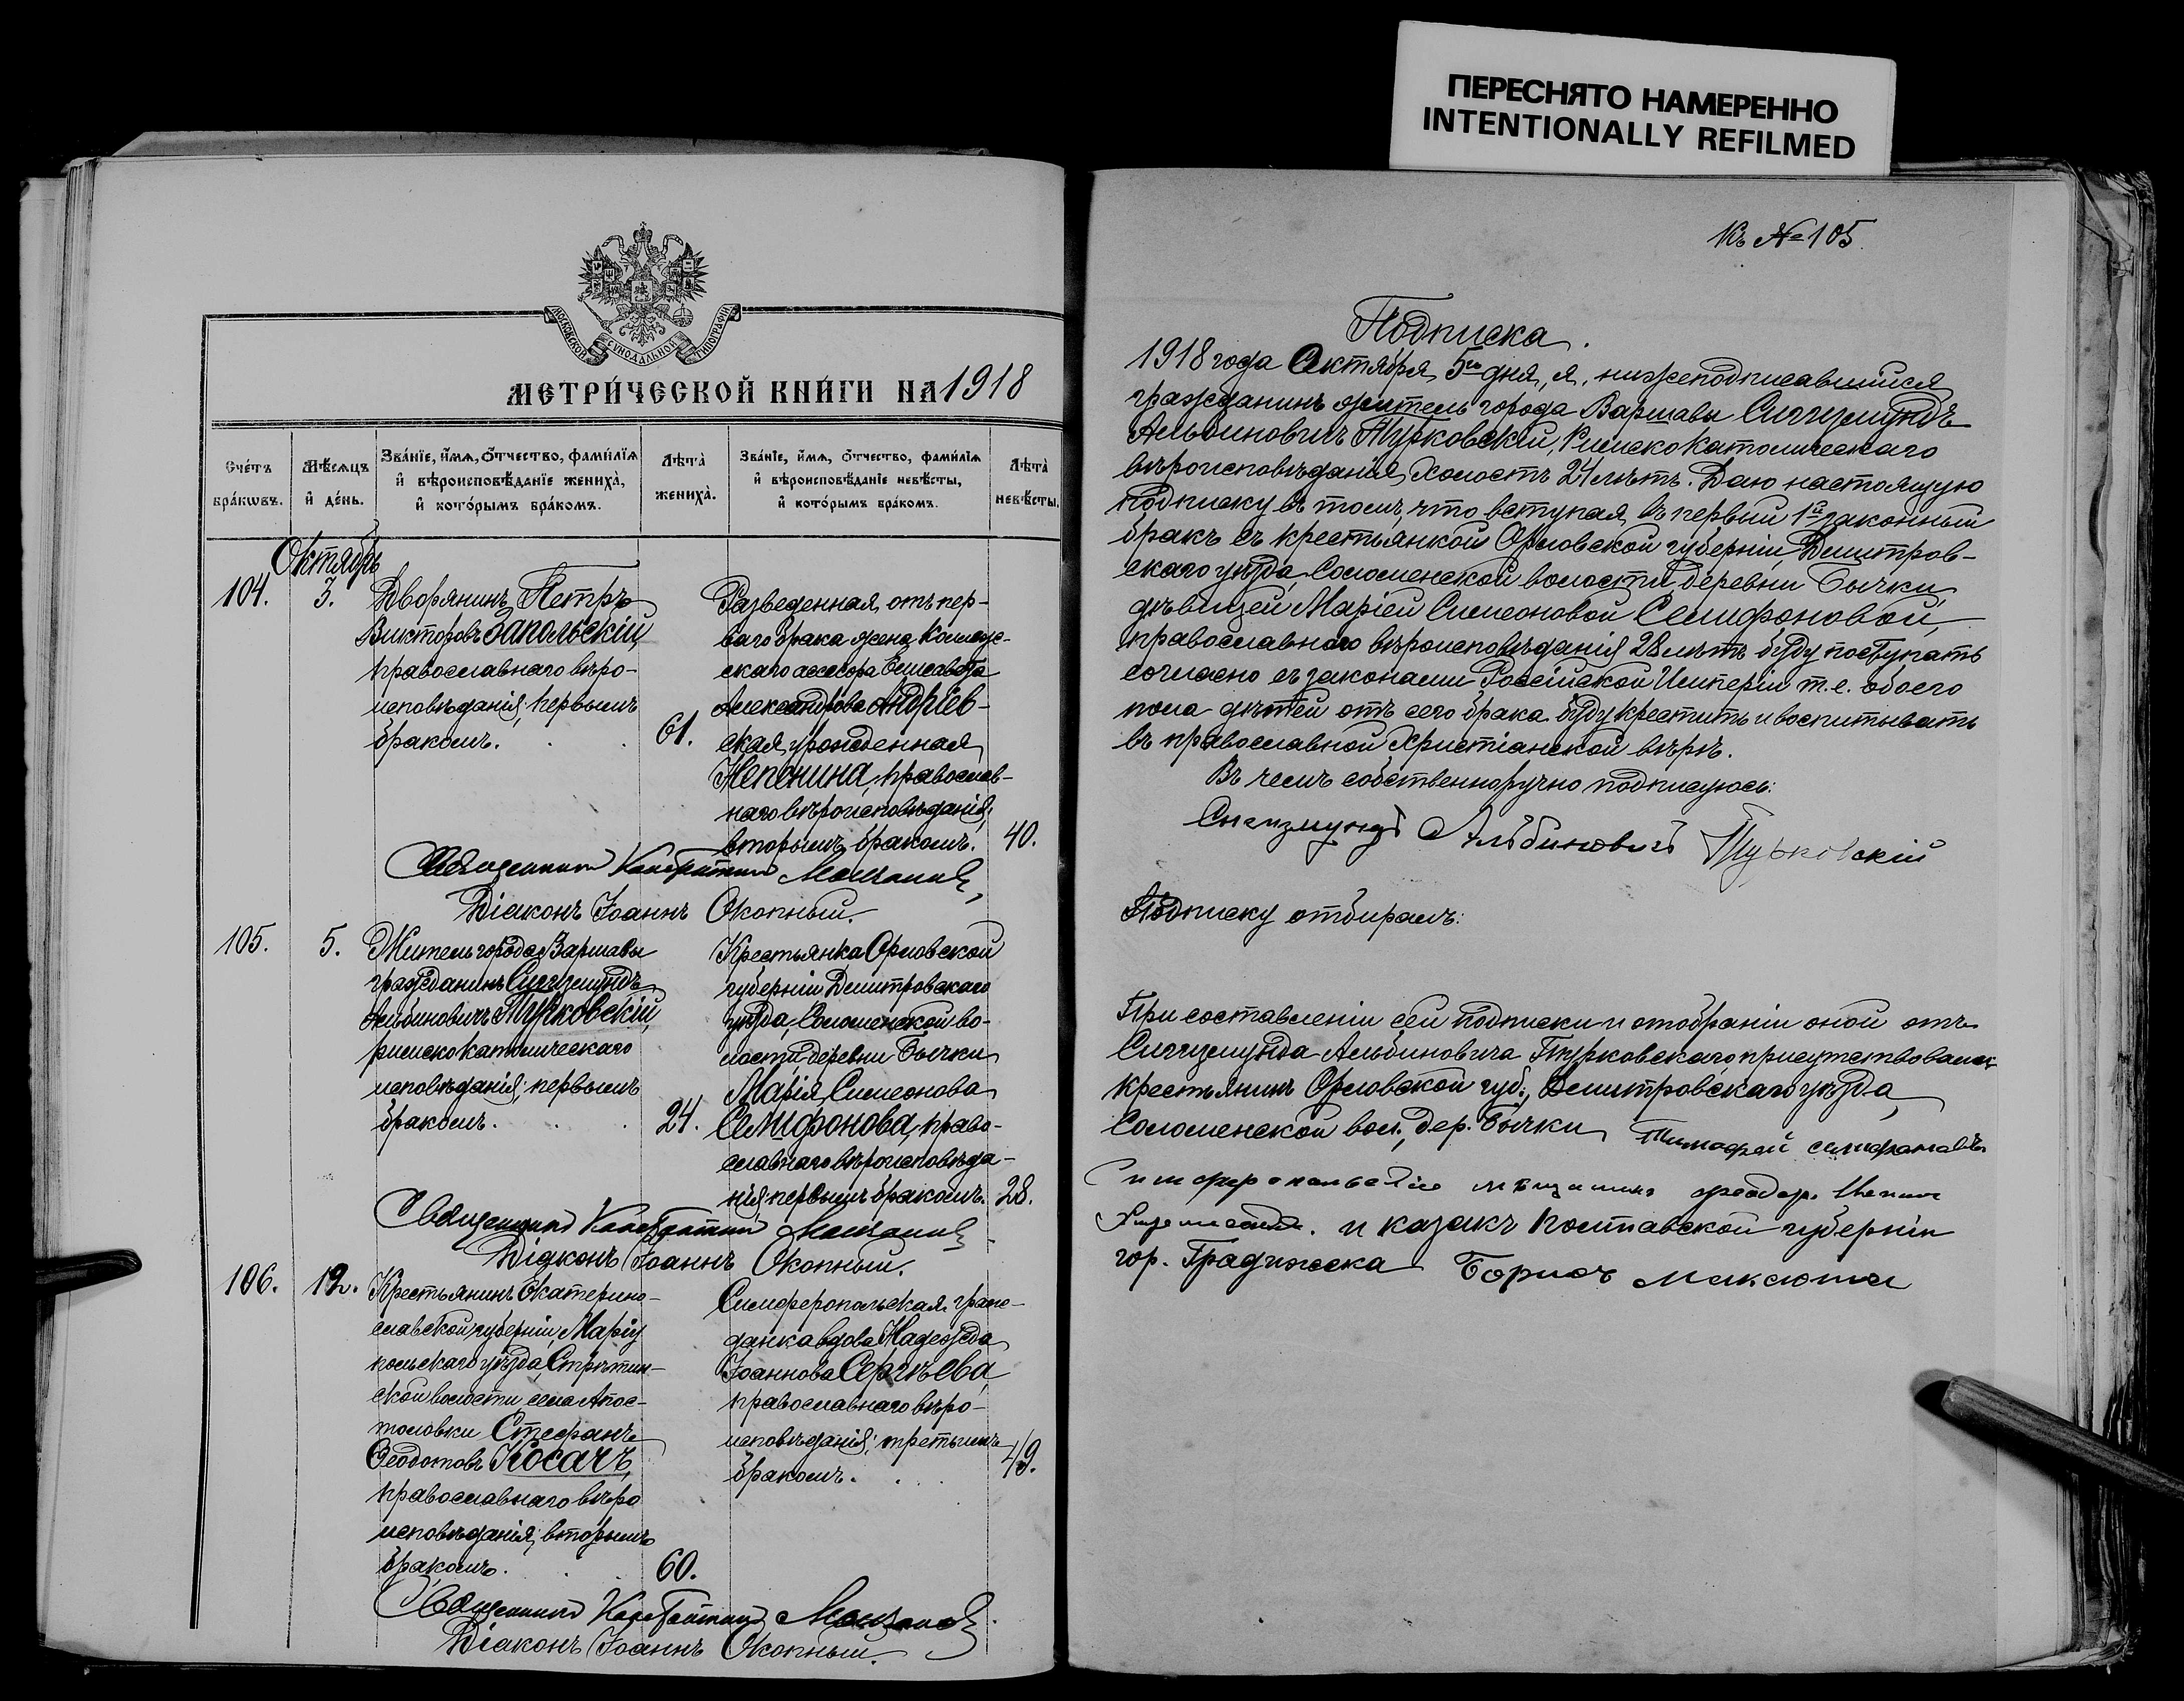 ПЕРЕСНЯТО НАМЕРЕННО
INTENTIONALLY REFILMED
МОСКОВСКОЙ СѴНОДАЛЬНОЙ ТИПОГРАФІИ
МЕТРИ́ЧЕСКОЙ КНИ́ГИ НА 1918
Сче́тъ бра́кωвъ.
Мѣ́сяцъ и҆ де́нь.
Зва́нїе, и҆́мѧ, ѻ҆́тчество, фами́лїѧ и҆ вѣроисповѣ́данїе жениха̀, и҆ кото́рымъ бра́комъ.
Лѣта̀ жениха̀.
Зва́нїе, и҆́мѧ, ѻ҆́тчество, фами́лїѧ и҆ вѣроисповѣ́данїе невѣ́сты, и҆ кото́рымъ бра́комъ.
Лѣта̀ невѣ́сты.
Октябрь
104.
3.
Дворянинъ Петръ
Викторовъ Запольскій,
православнаго вѣро-
исповѣданія; первымъ
бракомъ.
61.
Разведенная отъ пер-
ваго брака жена Коллеж-
скаго ассесора Елисавета
Александрова Андріев-
ская, урожденная
Непенина, православ-
наго вѣроисповѣданія;
вторымъ бракомъ.
40.
Священникъ Константинъ
Діаконъ Іоаннъ Окопный.
105.
5.
Житель города Варшавы
гражданинъ Сигизмундъ
Альбиновичъ Турковскій,
римско католическаго
исповѣданія; первымъ
бракомъ.
24.
Крестьянка Орловской
губерніи Дмитровскаго
уѣзда, Соломенской во-
лости, деревни Бычки
Марія Симеонова
Селифонова, право-
славнаго вѣроисповѣда-
нія; первымъ бракомъ.
28.
Священникъ Константинъ
Діаконъ Іоаннъ Окопный.
106.
12.
Крестьянинъ Екатерино-
славской губерніи, Маріу
польскаго уѣзда, Стрѣтин-
ской волости, села Апос-
толовки Стефанъ
Феодотовъ Косачъ,
православнаго вѣро
исповѣданія; вторымъ
бракомъ.
60.
Симферопольская граж-
данка вдова Надежда
Іоаннова Сергѣева,
православнаго вѣро-
исповѣданія; третьимъ
бракомъ.
49.
Священникъ Константинъ
Діаконъ Іоаннъ Окопный.
Къ № 105.
Подписка.
1918 года Октября 5го дня, я, нижеподписавшійся
гражданинъ житель города Варшавы Сигизмундъ
Альбиновичъ Турковскій, Римско Католическаго
вѣроисповѣданія, холостъ 24 лѣтъ. Даю настоящую
подписку въ томъ, что вступая въ первый 1й законный
бракъ съ крестьянкой Орловской губерніи, Дмитров-
скаго уѣзда, Соломенской волости деревни Бычки,
дѣвицей Маріей Симеоновой Селифоновой,
православнаго вѣроисповѣданія 28 лѣтъ буду поступать
согласно съ законами Россійской Имперіи т.е. обоего
пола дѣтей отъ сего брака буду крестить и воспитывать
въ православной Христіанской вѣрѣ.
Въ чемъ собственноручно подписуюсь:
Сигизмундъ Альбиновичъ Турковскій
Подписку отбиралъ:
При составленіи сей подписки и отобраніи оной отъ
Сигизмунда Альбиновича Турковскаго присутствовали:
крестьянинъ Орловской губ., Дмитровскаго уѣзда,
Соломенской вол., дер. Бычки Тимофей Селифоновъ
Симферопольскій мѣщанинъ Феодор.
и казакъ Полтавской губерніи
гор. Градижска Борисъ Максюта